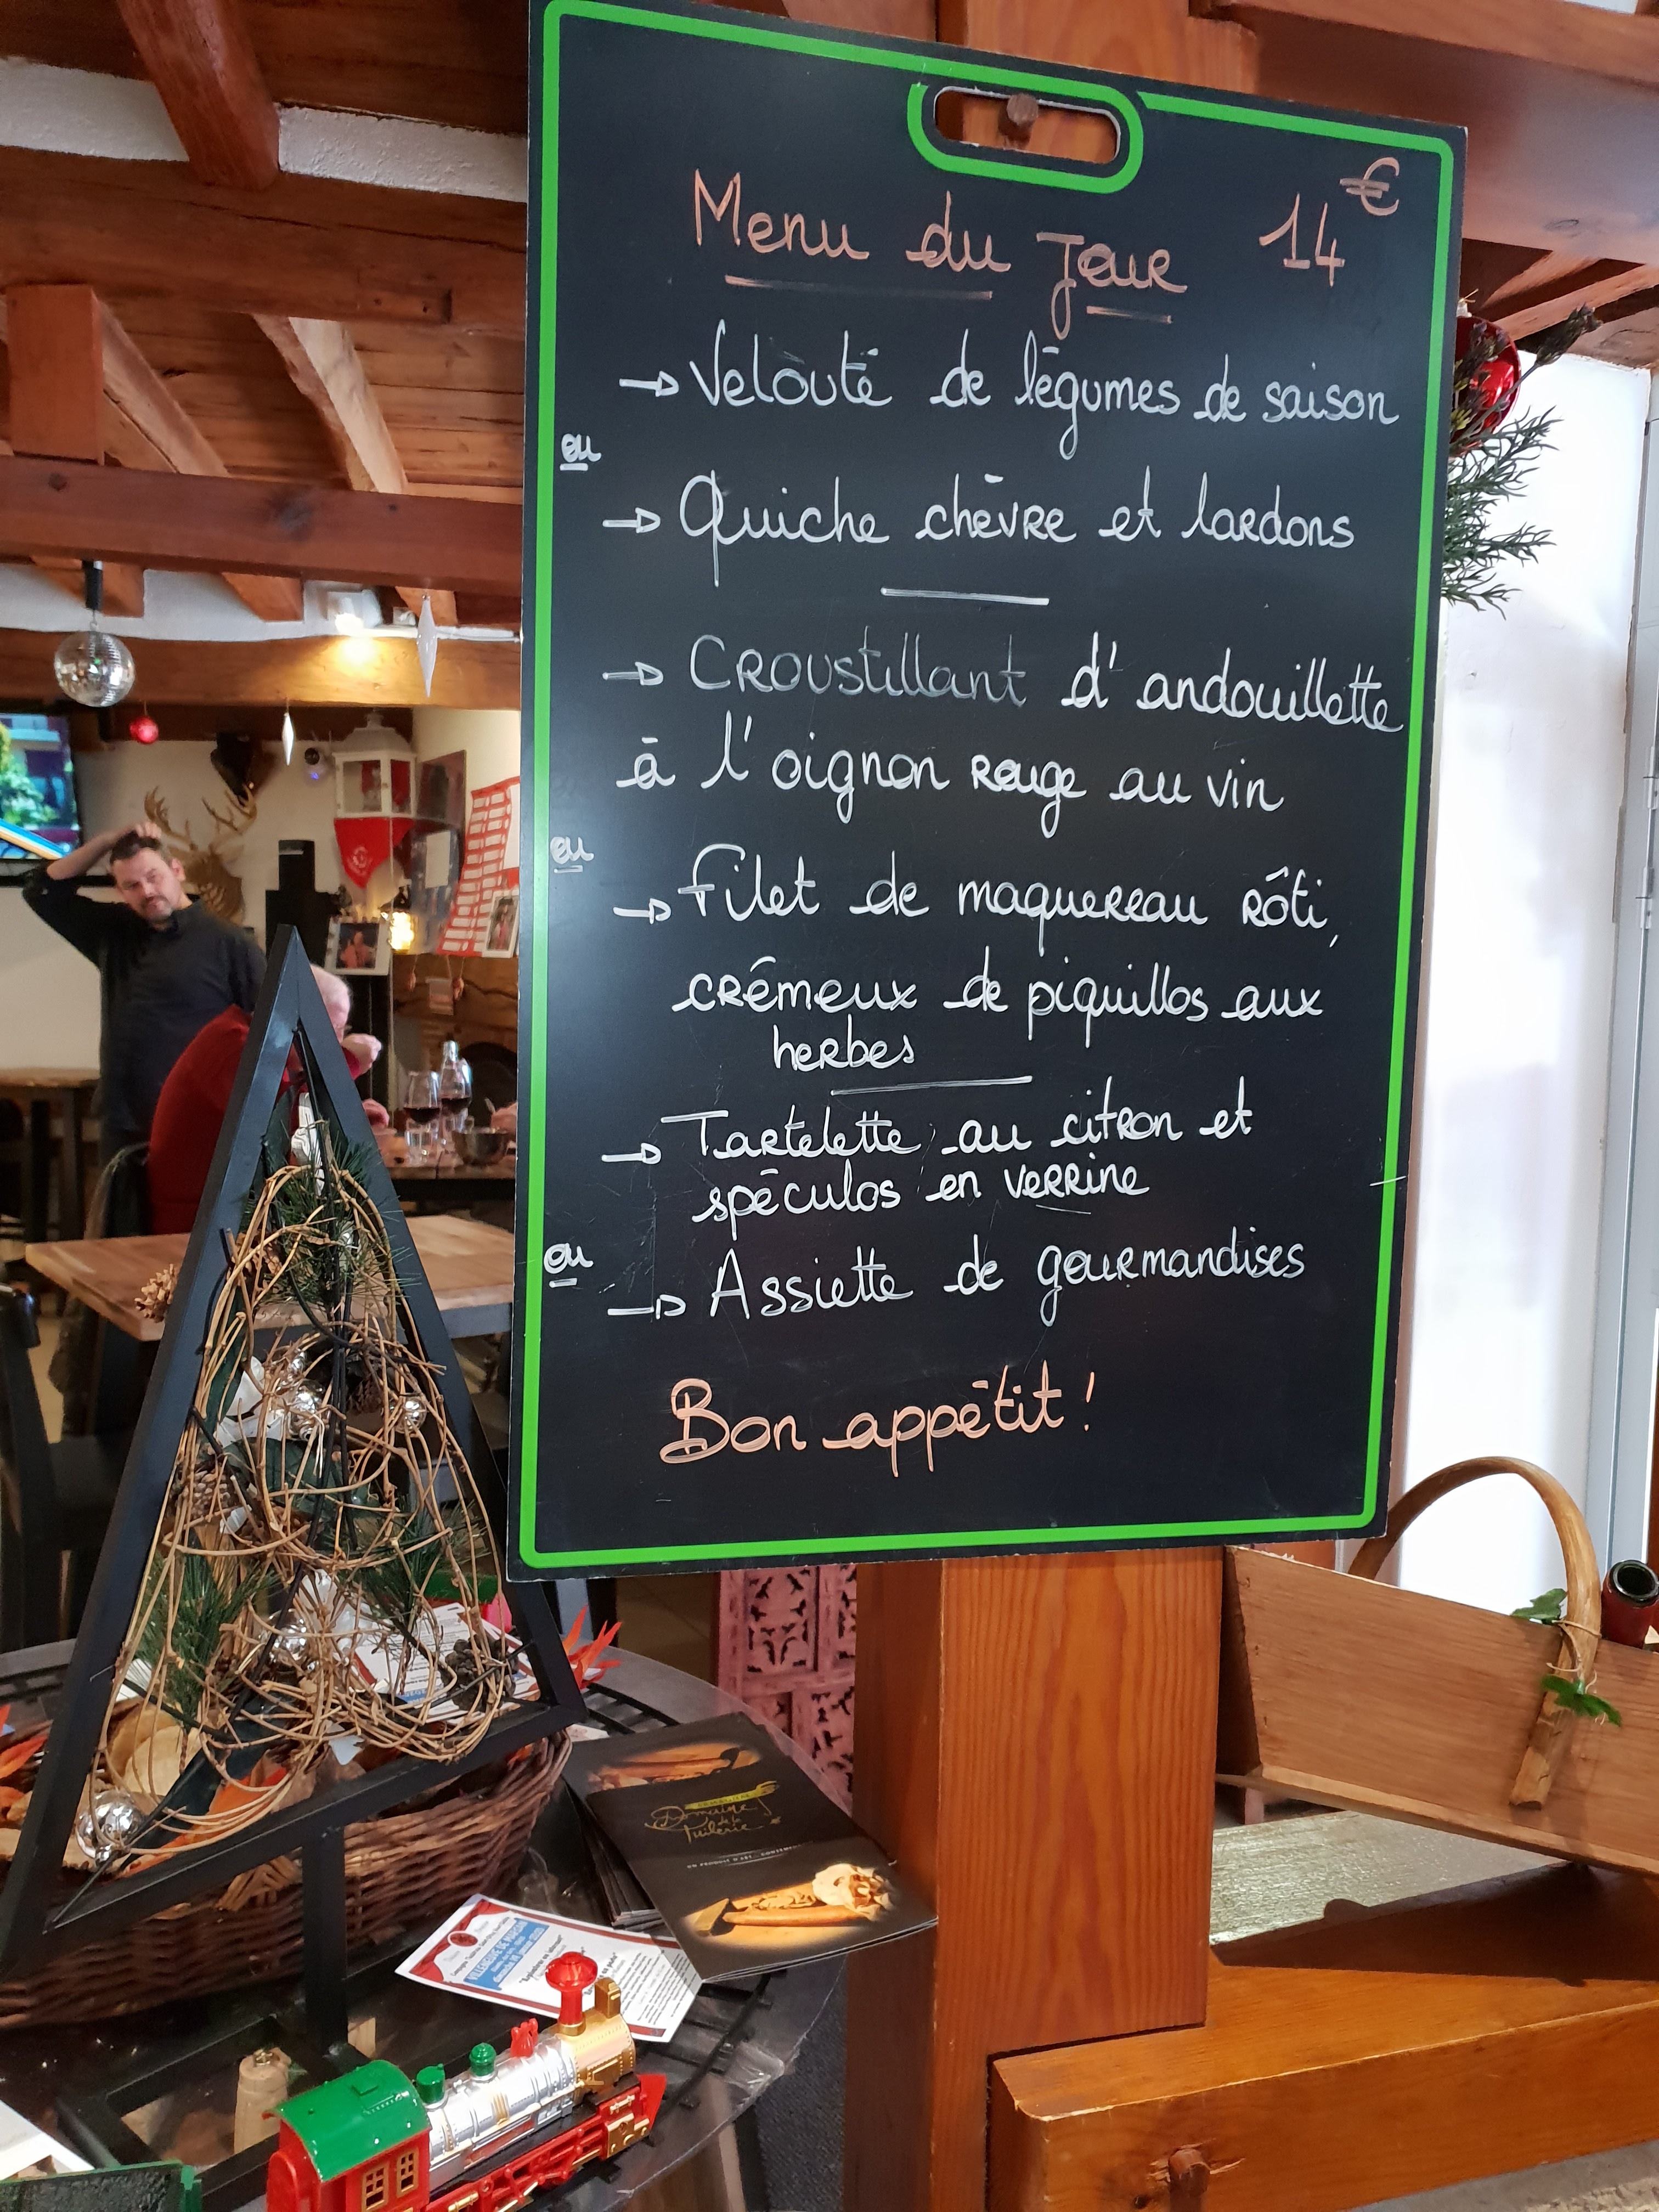 Menu du jour 14€
→ Velouté de légumes de saison
ou
→ Quiche chèvre et lardons
→ Croustillant d'andouillette
à l'oignon rouge au vin
ou
→ Filet de maquereau rôti,
crémeux de piquillos aux
herbes
→ Tartelette au citron et
spéculos en verrine
ou
→ Assiette de gourmandises
Bon appétit !
Domaine
de la
Tuilerie